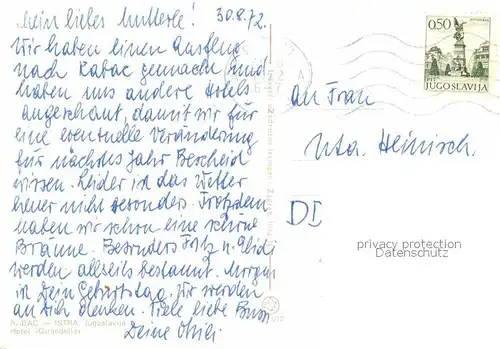 Mein liebes Mutterle! 30.8.72.
Wir haben einen Ausflug
nach Rabac gemacht und
haben uns andere Hotels
angeschaut, damit wir für
eine eventuelle Veränderung
für nächstes Jahr Bescheid
wissen. Leider ist das Wetter
heuer nicht besonders. Trotzdem
haben wir schon eine schöne
Bräune. Besonders Fritz u. Heidi
werden allseits bestaunt. Morgen
ist Dein Geburtstag, wir werden
an Dich denken. Viele liebe Bussi
Deine
RABAC — ISTRA, Jugoslavija
Hotel «Girandella»
0,50
JUGOSLAVIJA
An Frau
Uta Heinisch.
privacy protection
Datenschutz